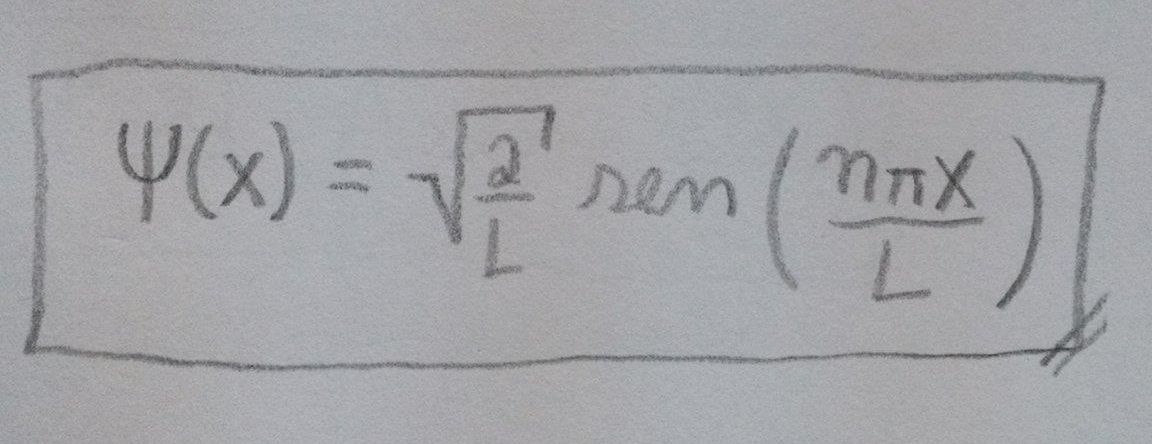 Ψ(x) = √(2/L) sen(nπx/L)